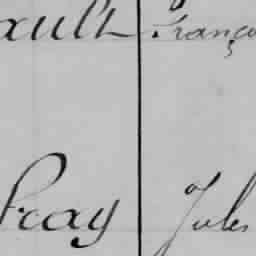 ault Franço
Fray Jules